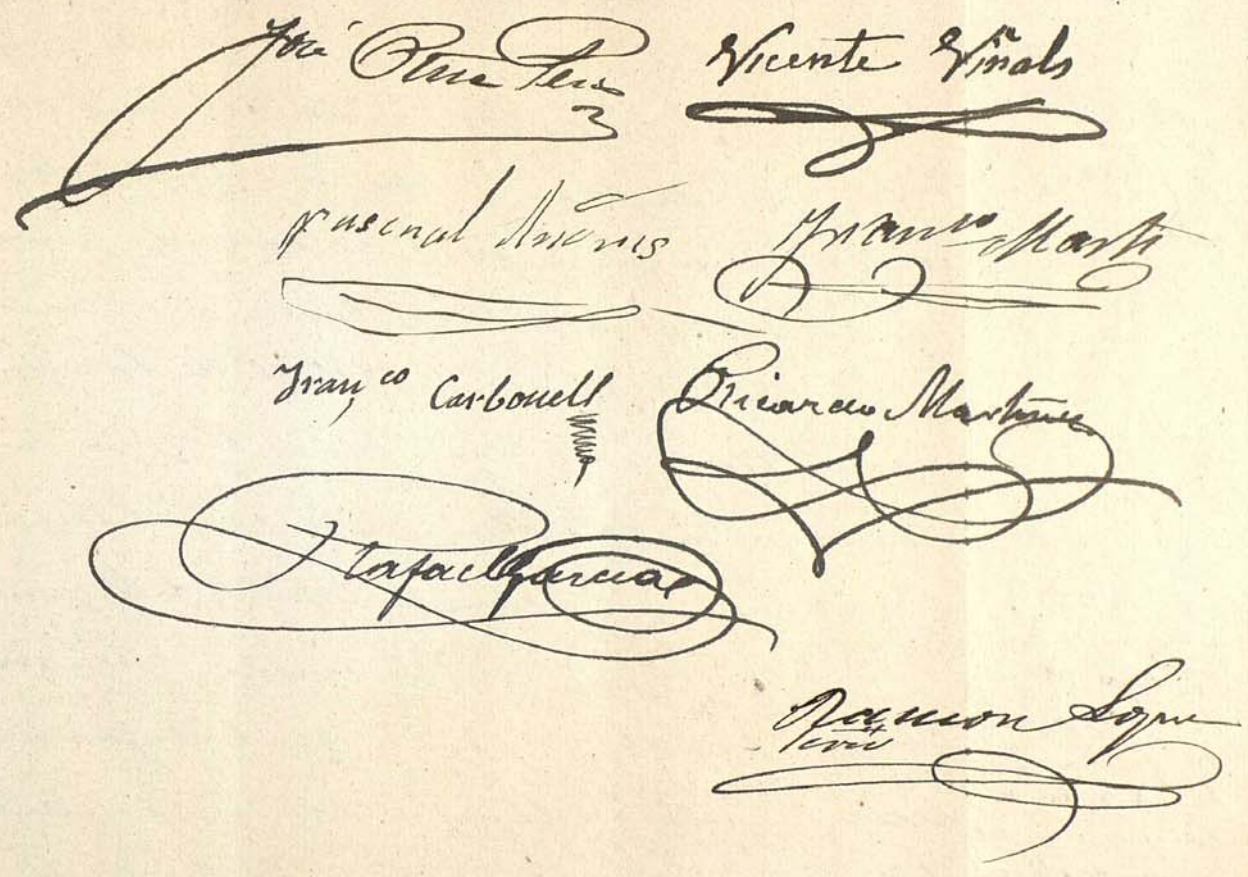 José Peris Vicente Viñals
Pascual Franco Martí
Franco Carbonell Ricardo Martinez
Rafael Garcia
Ramon Lopez